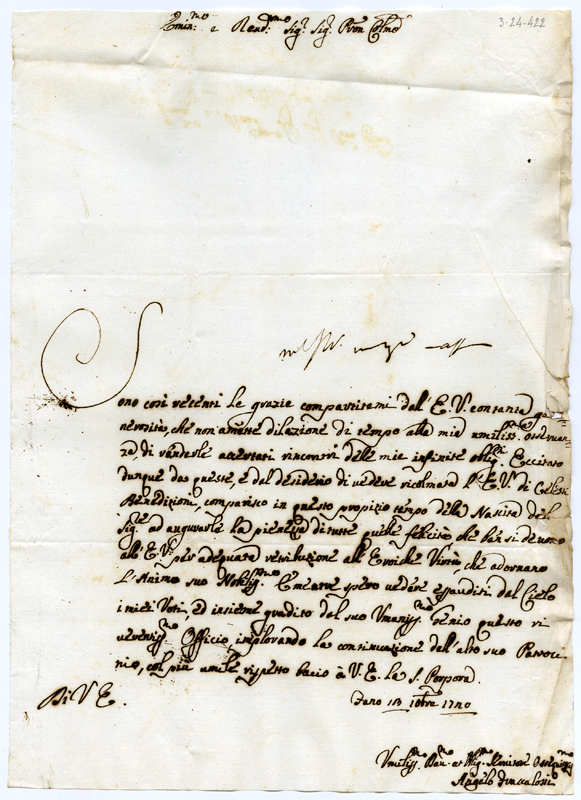 3-24-422
Emin:mo e Reud:mo Sig.r Sig.r Pron Colmo
Sono così recenti le grazie compartitemi dall' E. V. con tanta ge=
nerosità, che non amette dilazione di tempo alla mia umiliss.ma osservan=
za di renderle accertati rincontri delle mie infinite oblig.ni Eccitato
dunque da queste, e dal desiderio di vedere ricolmata l' E. V. di Celesti
Benedizioni, comparisco in questo propizio tempo della Nascita del
Sig.re ad augurarle la pienezza di tutte quelle felicità che ben si devono
all' E. V. per adequata retribuzione all' Eroiche Virtù, che adornano
l' Animo suo Nobiliss.mo E mentre spero vedere essauditi dal Cielo
i miei Voti, ed insieme gradito dal suo Umaniss.mo Genio questo ri
verentiss.mo Officio, implorando la continuazione dell' alto suo Patroci
nio, col più umile rispetto bacio à V. E. la S. Porpora.
Di V. E. Fano 18 Xbre 1720
Umiliss.mo Dev.mo et Oblig.mo Servitore Ossequiosiss.mo
Angelo